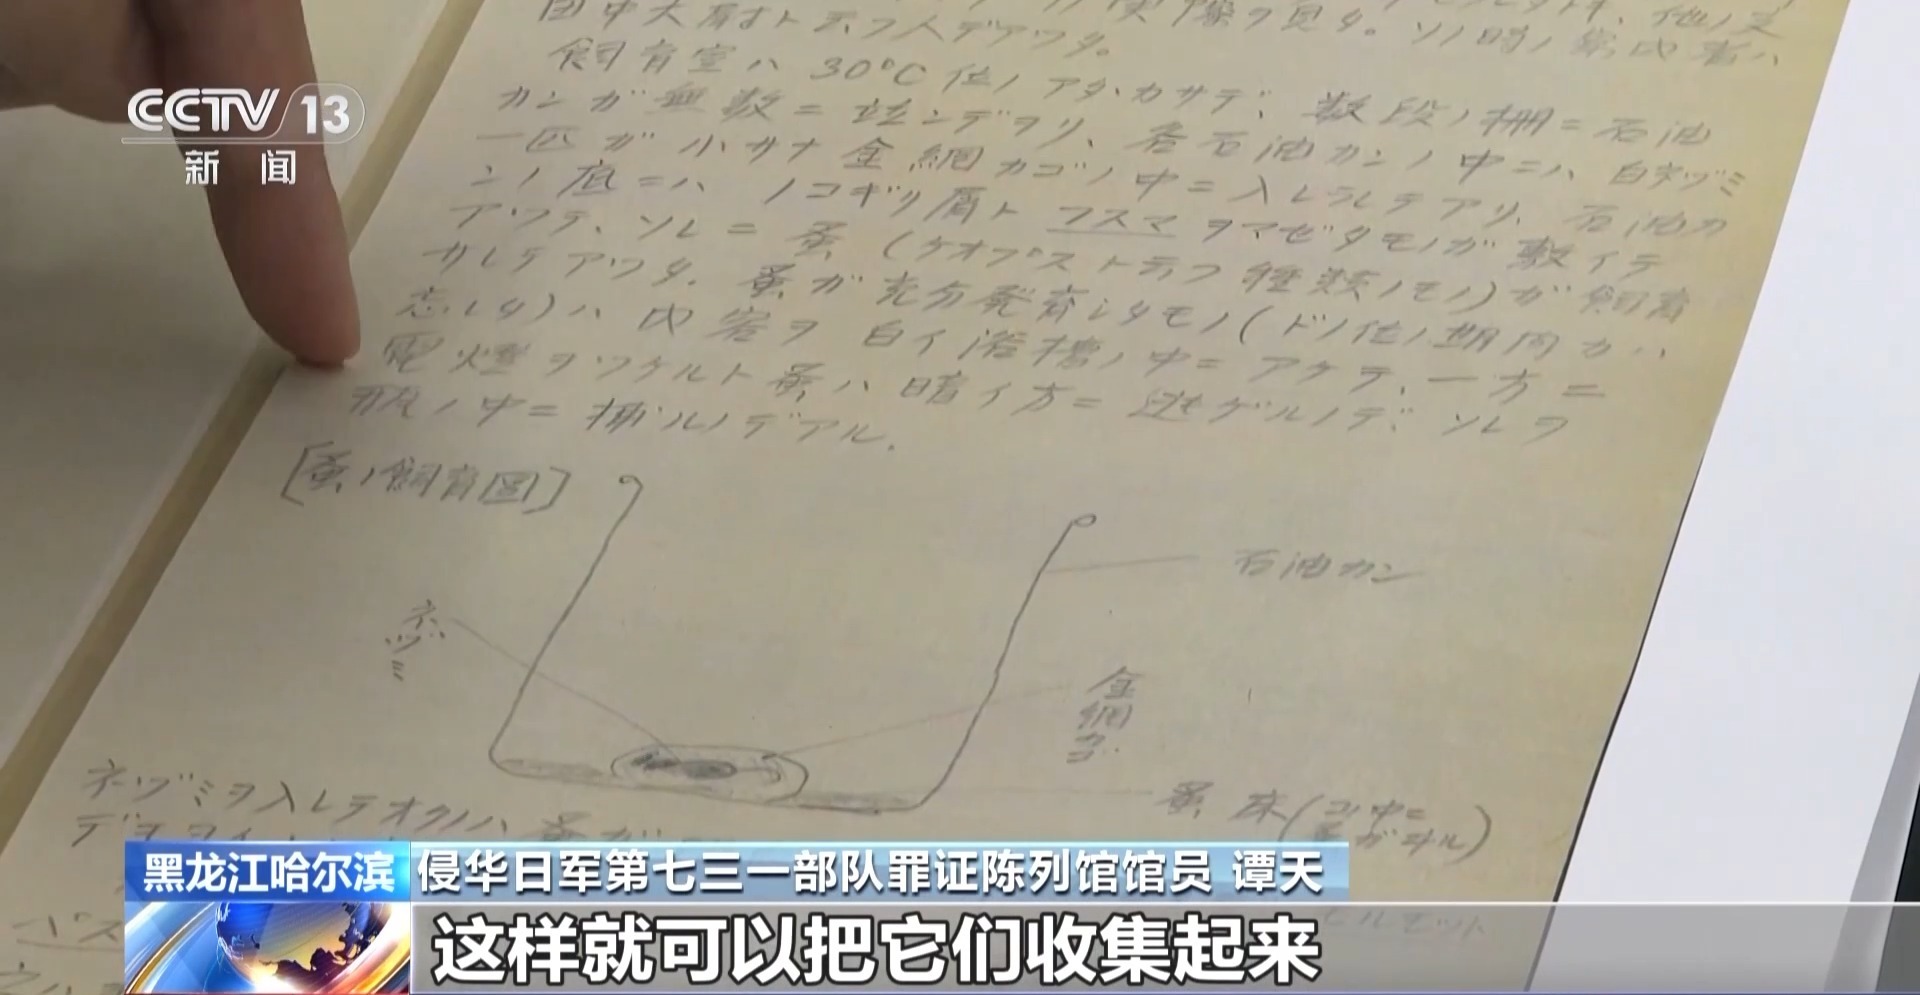 飼育室ハ 30°C 位ノアタヽカサデ、数段ノ棚ニ石油
カンガ無数ニ並ンデヲリ、各石油カンノ中ニハ白ネヅミ
一匹ガ小サナ金網カゴノ中ニ入レラレテアリ、石油カ
ンノ底ニハノコギリ屑トフスマヲマゼタモノガ敷イテ
アツテ、ソレニ蚤(ケオプストテフ種類ノモノ)ガ飼育
サレテアツタ。蚤ガ充分発育シタモノ(ドノ位ノ期間カハ
忘レタ)ハ内容ヲ白イ浴槽ノ中ニアケテ、一方ニ
電燈ヲツケルト蚤ハ暗イ方ニ逃ゲルノデ、ソレヲ
瓶ノ中ニ捕ルノデアル。
[蚤ノ飼育圖]
石油カン
ネヅミ
金網カゴ
蚤床
ネヅミヲ入レテオクノハ蚤ガ
CCTV 13
新闻
黑龙江哈尔滨
侵华日军第七三一部队罪证陈列馆馆员 谭天
这样就可以把它们收集起来